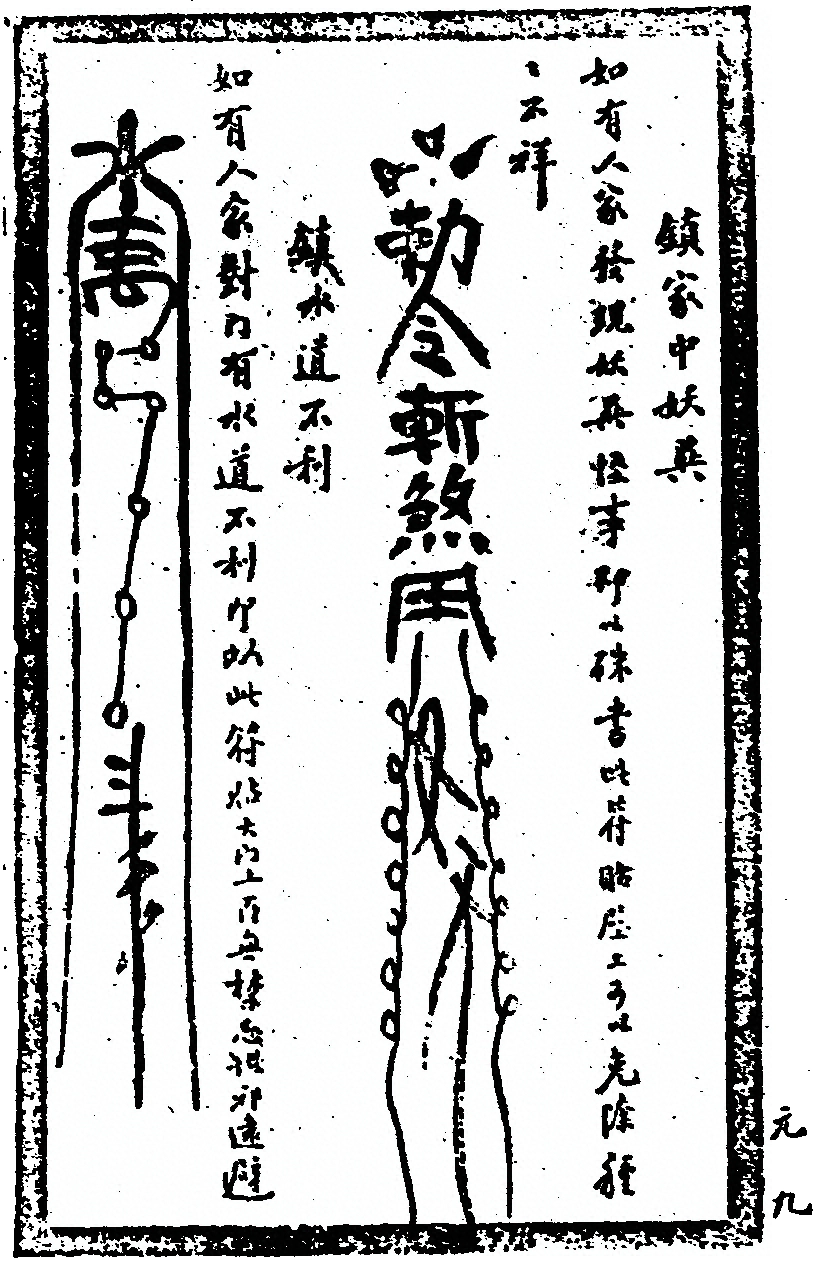 鎮家中妖異
如有人家發現妖異怪事即以硃書此符貼壁上可以免除種
〻不祥
勅令斬煞
鎮水道不利
如有人家對門有水道不利即以此符貼大門上百無禁忌諸邪遠避
元
九